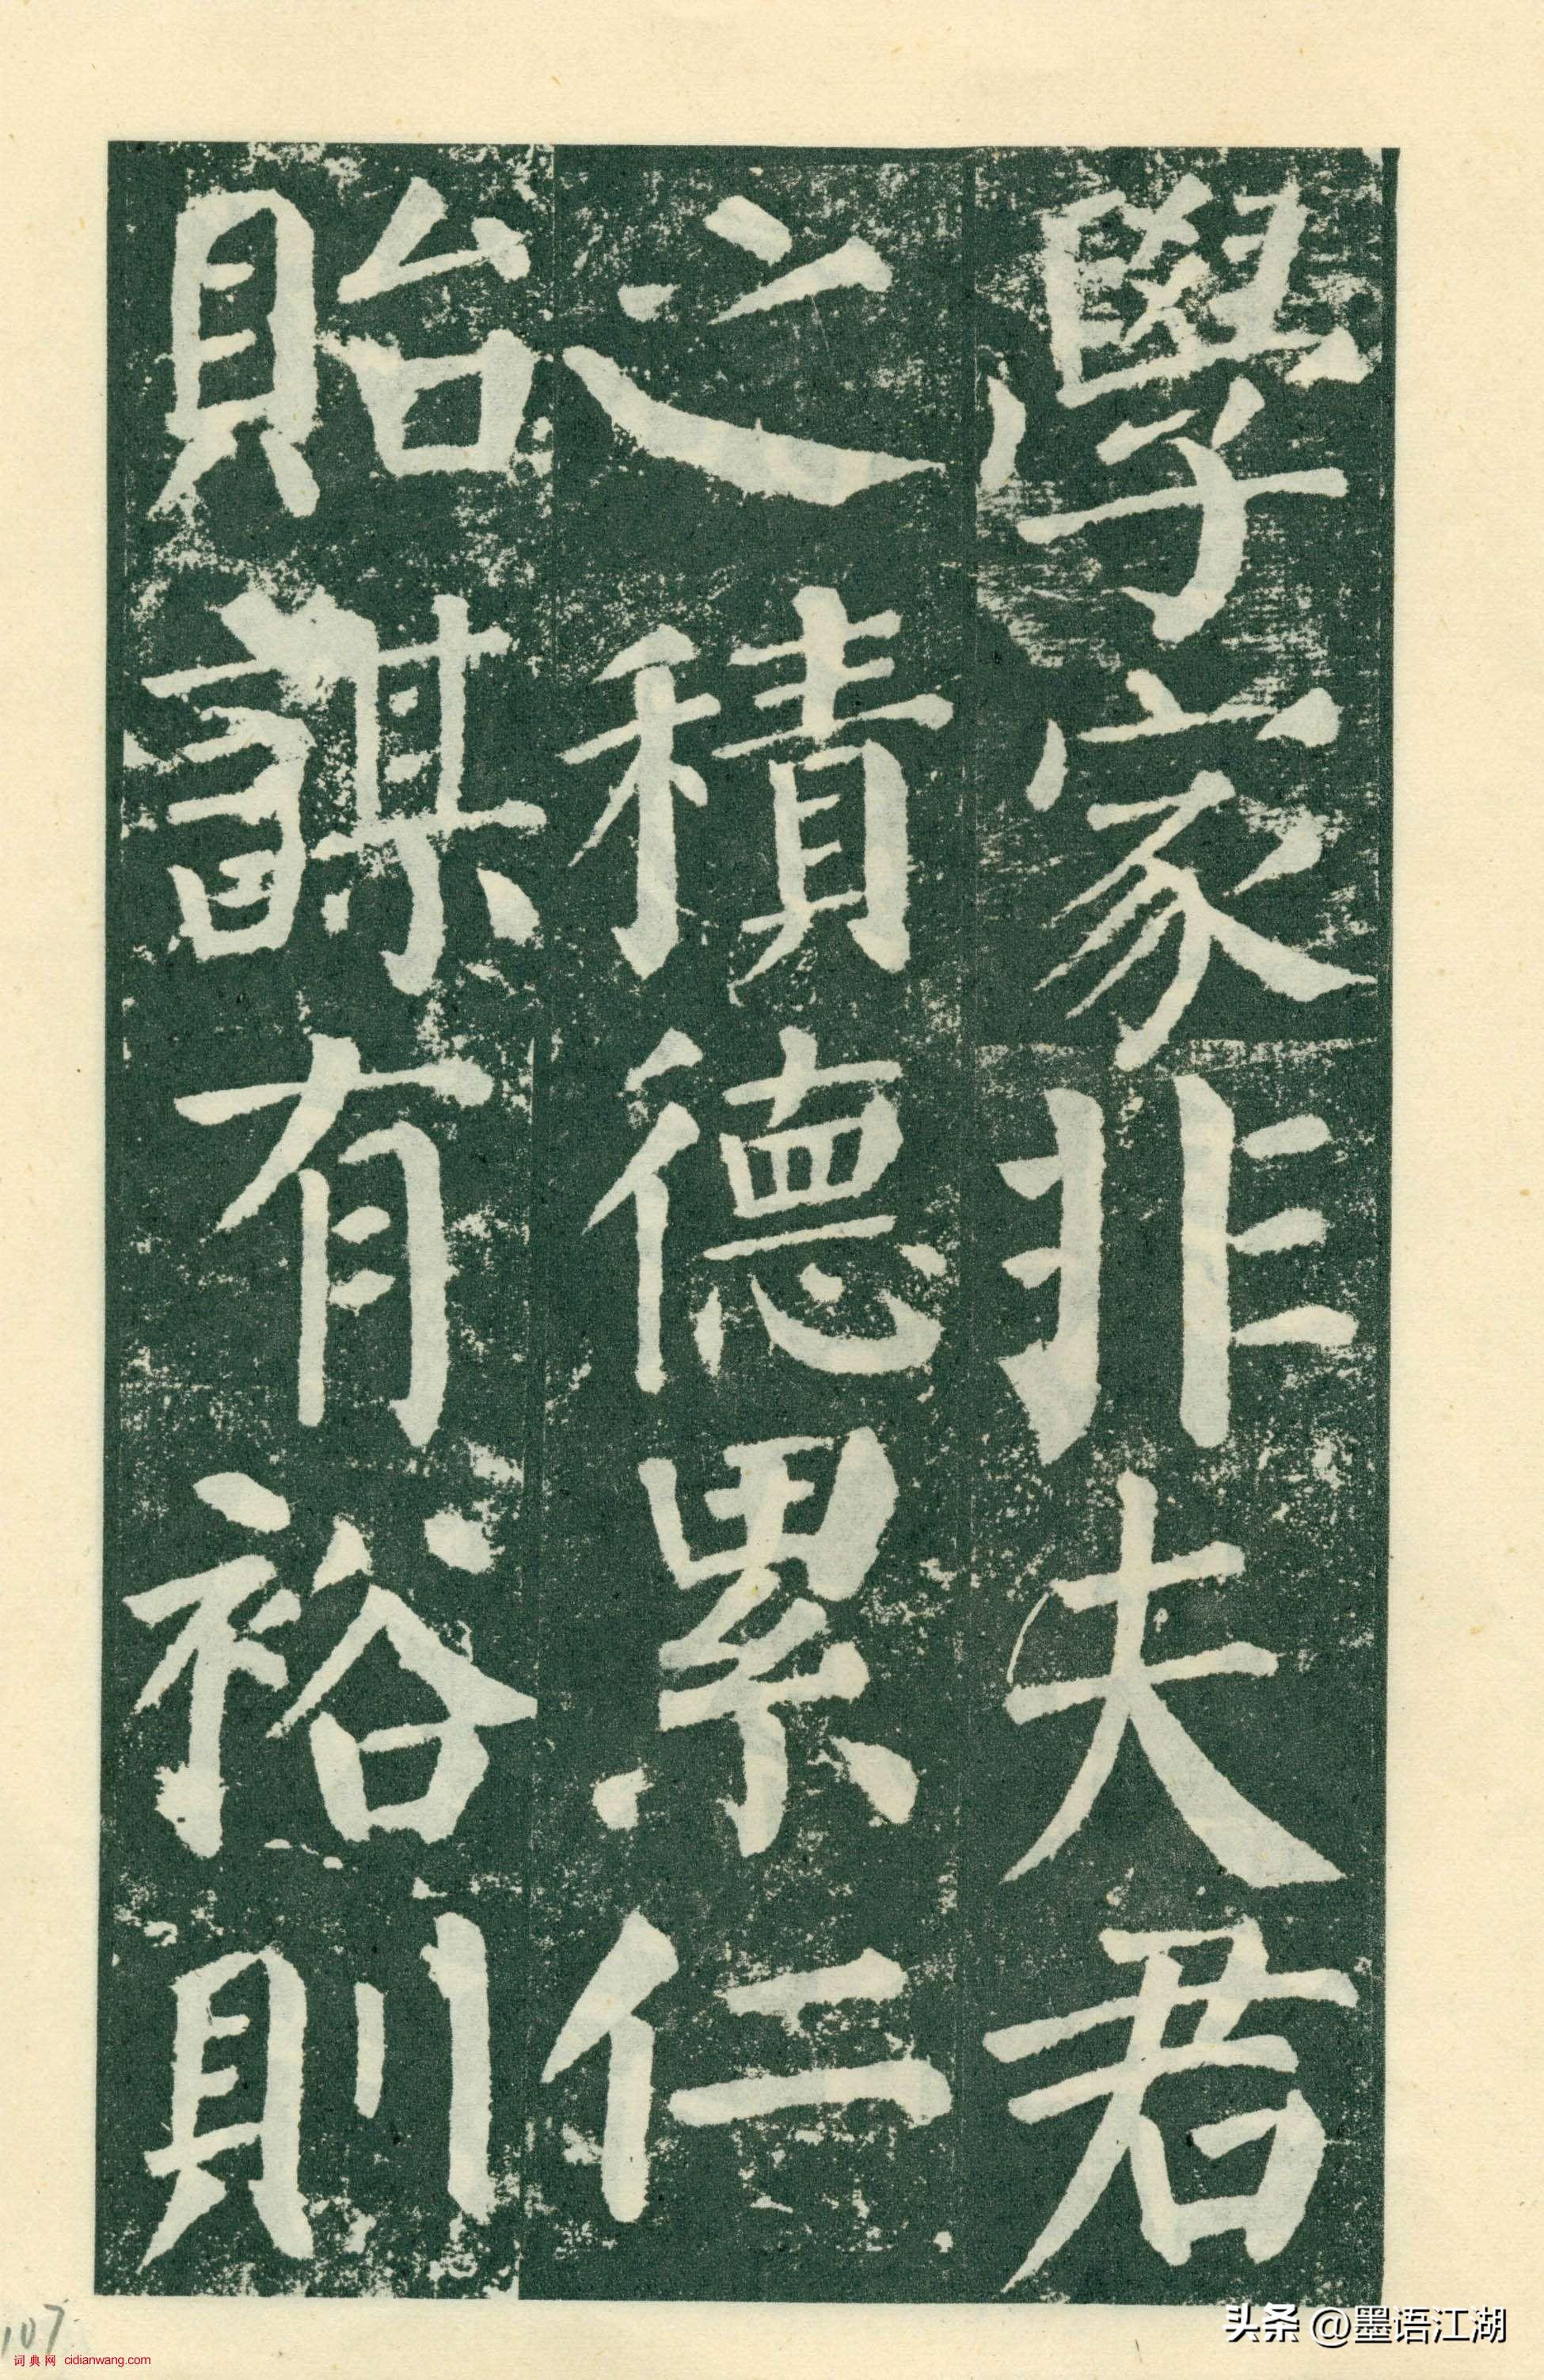 學家非夫君
之積德累仁
貽謀有裕則
107
头条 @墨语江湖
词典网 cidianwang.com